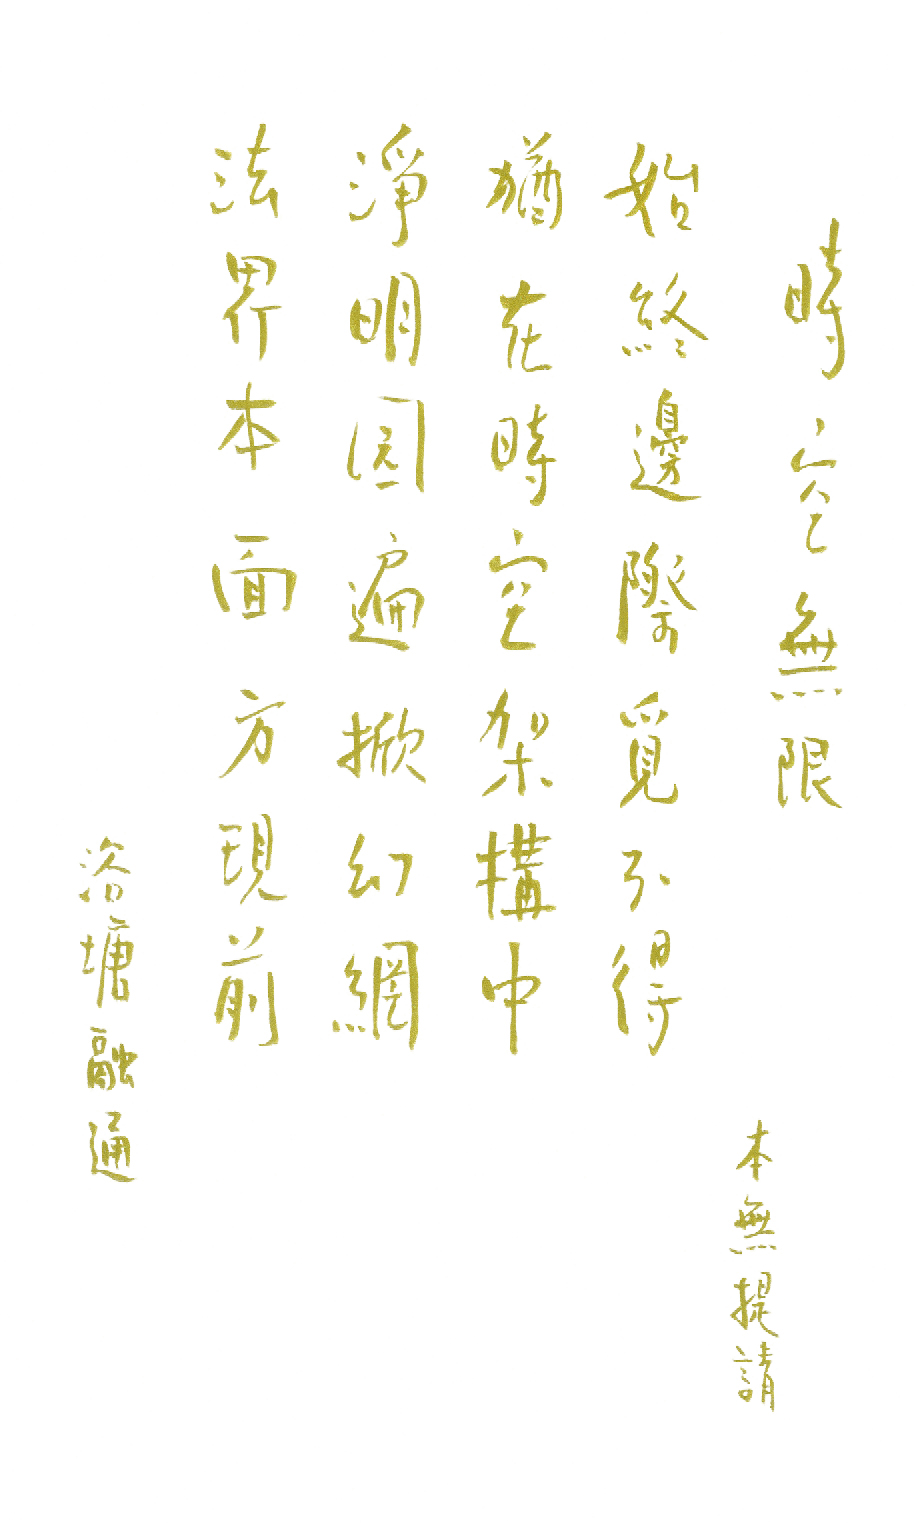 時空無限
本無提請
始終邊際覓不得
猶在時空架構中
淨明圓遍掀幻網
法界本面方現前
浴塘融通